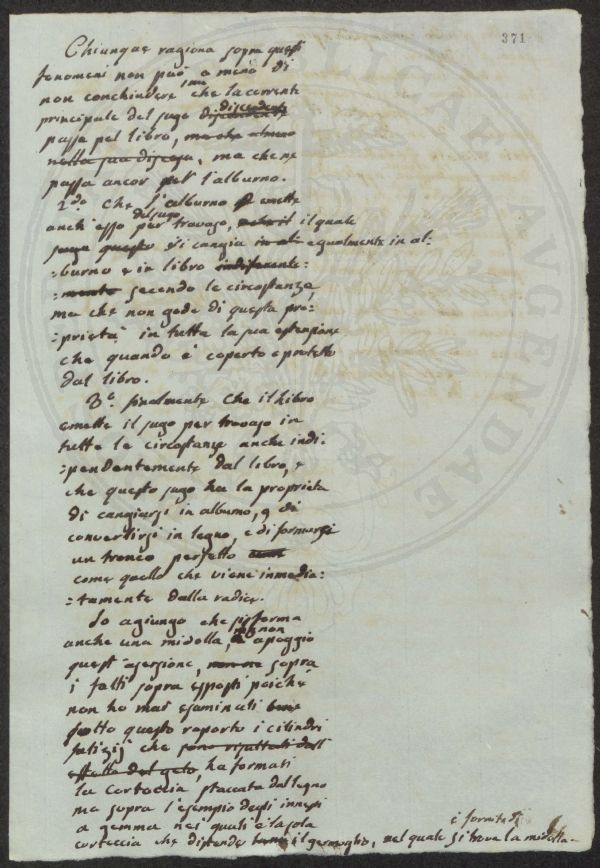 371
Chiunque ragiona sopra questi
fenomeni non può a meno di
non conchiudere 1mo che la corrente
principale del sugo discendente
passa pel libro, ma che almeno
nella sua discesa, ma che ne
passa ancor pel l'alburno.
2do che l'alburno emette
anch'esso del sugo per travaso, il quale
questo si cangia in al egualmente in al:
:burno e in libro indiferente:
:mente secondo le circostanze,
ma che non gode di questa pro:
:prietà in tutta la sua estensione
che quando è coperto e protetto
dal libro.
3o finalmente che il libro
emette il sugo per travaso in
tutte le circostanze anche indi:
:pendentemente dal libro, e
che questo sugo ha la proprietà
di cangiarsi in alburno, e di
convertirsi in legno, e di formarsi
un tronco perfetto
come quello che viene immedia:
:tamente dalla radice.
Io agiungo che si forma
anche una midolla, non apoggio
quest'asersione, sopra
i fatti sopra esposti poichè
non ho mai esaminati bene
sotto questo raporto i cilindri
che sono risultati dall'
effetto del gelo, ha formati
la corteccia staccata dal legno
ma sopra l'esempio degli innesti
a gemma nei quali è la sola
corteccia che distende il germoglio, nel quale si trova la midolla.
è fornito di